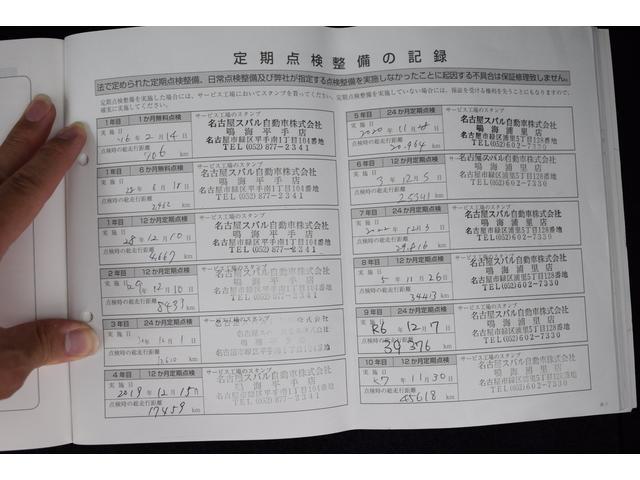 定期点検整備の記録
法で定められた定期点検整備、日常点検整備及び弊社が指定する点検整備を実施しなかったことに起因する不具合は保証修理致しません。
定期点検整備を実施した場合には、サービス工場においてスタンプを貰ってください。定期点検整備を実施していない場合には、保証を受ける権利を失うことにもなりますので、
確実に実施してください。
1年目 1か月無料点検 サービス工場のスタンプ
実施日 '16年2月14日 名古屋スバル自動車株式会社
鳴海平手店
点検時の総走行距離 名古屋市緑区平手南1丁目104番地
706 km TEL(052)877-2341
1年目 6か月無料点検 サービス工場のスタンプ
実施日 名古屋スバル自動車株式会社
鳴海平手店
点検時の総走行距離 名古屋市緑区平手南1丁目104番地
km TEL(052)877-2341
1年目 12か月定期点検 サービス工場のスタンプ
実施日 28年12月10日 名古屋スバル自動車株式会社
鳴海平手店
点検時の総走行距離 名古屋市緑区平手南1丁目104番地
4,667 km TEL(052)877-2341
2年目 12か月定期点検 サービス工場のスタンプ
実施日 29年12月10日 名古屋スバル自動車株式会社
鳴海平手店
点検時の総走行距離 名古屋市緑区平手南1丁目104番地
8433 km TEL(052)877-2341
3年目 24か月定期点検 サービス工場のスタンプ
実施日 年12月1日
点検時の総走行距離
km
4年目 12か月定期点検 サービス工場のスタンプ
実施日 2019年12月15日 名古屋スバル自動車株式会社
鳴海平手店
点検時の総走行距離 名古屋市緑区平手南1丁目104番地
17459 km TEL(052)877-2341
5年目 24か月定期点検 サービス工場のスタンプ
実施日 2020年11月 日 名古屋スバル自動車株式会社
鳴海浦里店
点検時の総走行距離 名古屋市緑区浦里5丁目128番地
20,964 km TEL(052)602-7330
6年目 12か月定期点検 サービス工場のスタンプ
実施日 3年12月5日 名古屋スバル自動車株式会社
鳴海浦里店
点検時の総走行距離 名古屋市緑区浦里5丁目128番地
25341 km TEL(052)602-7330
7年目 24か月定期点検 サービス工場のスタンプ
実施日 2022年12月3日 名古屋スバル自動車株式会社
鳴海浦里店
点検時の総走行距離 名古屋市緑区浦里5丁目128番地
29,816 km TEL(052)602-7330
8年目 12か月定期点検 サービス工場のスタンプ
実施日 5年11月26日 名古屋スバル自動車株式会社
鳴海浦里店
点検時の総走行距離 名古屋市緑区浦里5丁目128番地
34413 km TEL(052)602-7330
9年目 24か月定期点検 サービス工場のスタンプ
実施日 R6年12月7日 名古屋スバル自動車株式会社
鳴海浦里店
点検時の総走行距離 名古屋市緑区浦里5丁目128番地
39,276 km TEL(052)602-7330
10年目 12か月定期点検 サービス工場のスタンプ
実施日 R7年11月30日 名古屋スバル自動車株式会社
鳴海浦里店
点検時の総走行距離 名古屋市緑区浦里5丁目128番地
45618 km TEL(052)602-7330